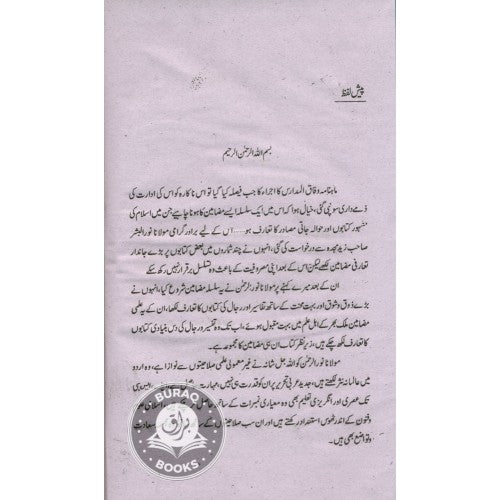 پیش لفظ
بسم اللہ الرحمٰن الرحیم
ماہنامہ وفاق المدارس کا اجراء کا جب فیصلہ کیا گیا تو اس ناکارہ کو اس کی ادارت کی
ذمے داری سونپی گئی، خیال ہوا کہ اس میں ایک سلسلہ ایسے مضامین کا ہونا چاہیے جن میں اسلام کی
مشہور کتابوں اور حوالہ جاتی مصادر کا تعارف ہو..... اس کے لیے برادر گرامی مولانا نور البشر
صاحب زید مجدہ سے درخواست کی گئی، انہوں نے چند شماروں میں بعض کتابوں پر بڑے جاندار
تعارفی مضامین لکھے لیکن اس کے بعد اپنی مصروفیت کے باعث وہ تسلسل برقرار نہیں رکھ سکے
ان کے بعد میرے کہنے پر مولانا نور الرحمٰن نے یہ سلسلہ مضامین شروع کیا، انہوں نے
بڑے ذوق وشوق اور بہت محنت کے ساتھ تفاسیر اور رجال کی کتابوں کا تعارف لکھا، ان کے یہ علمی
مضامین ملک بھر کے اہل علم میں بہت مقبول ہوئے، اب تک وہ تفسیر ورجال کی دس بنیادی کتابوں
کا تعارف لکھ چکے ہیں، زیر نظر کتاب ان ہی مضامین کا مجموعہ ہے۔
مولانا نور الرحمٰن کو اللہ جل شانہ نے غیر معمولی علمی صلاحیتوں سے نوازا ہے، وہ اردو
میں عالمانہ نثر لکھتے ہیں، جدید عربی تحریر پر ان کو قدرت ہی نہیں، مہارت
تک عصری اور انگریزی تعلیم بھی وہ معیاری نمبرات کے ساتھ حاصل
وفنون کے اندر ٹھوس استعداد رکھتے ہیں اور ان سب صلاحیتوں کے سعادت
وتواضع بھی ہیں۔
BURAQ
براق
BOOKS